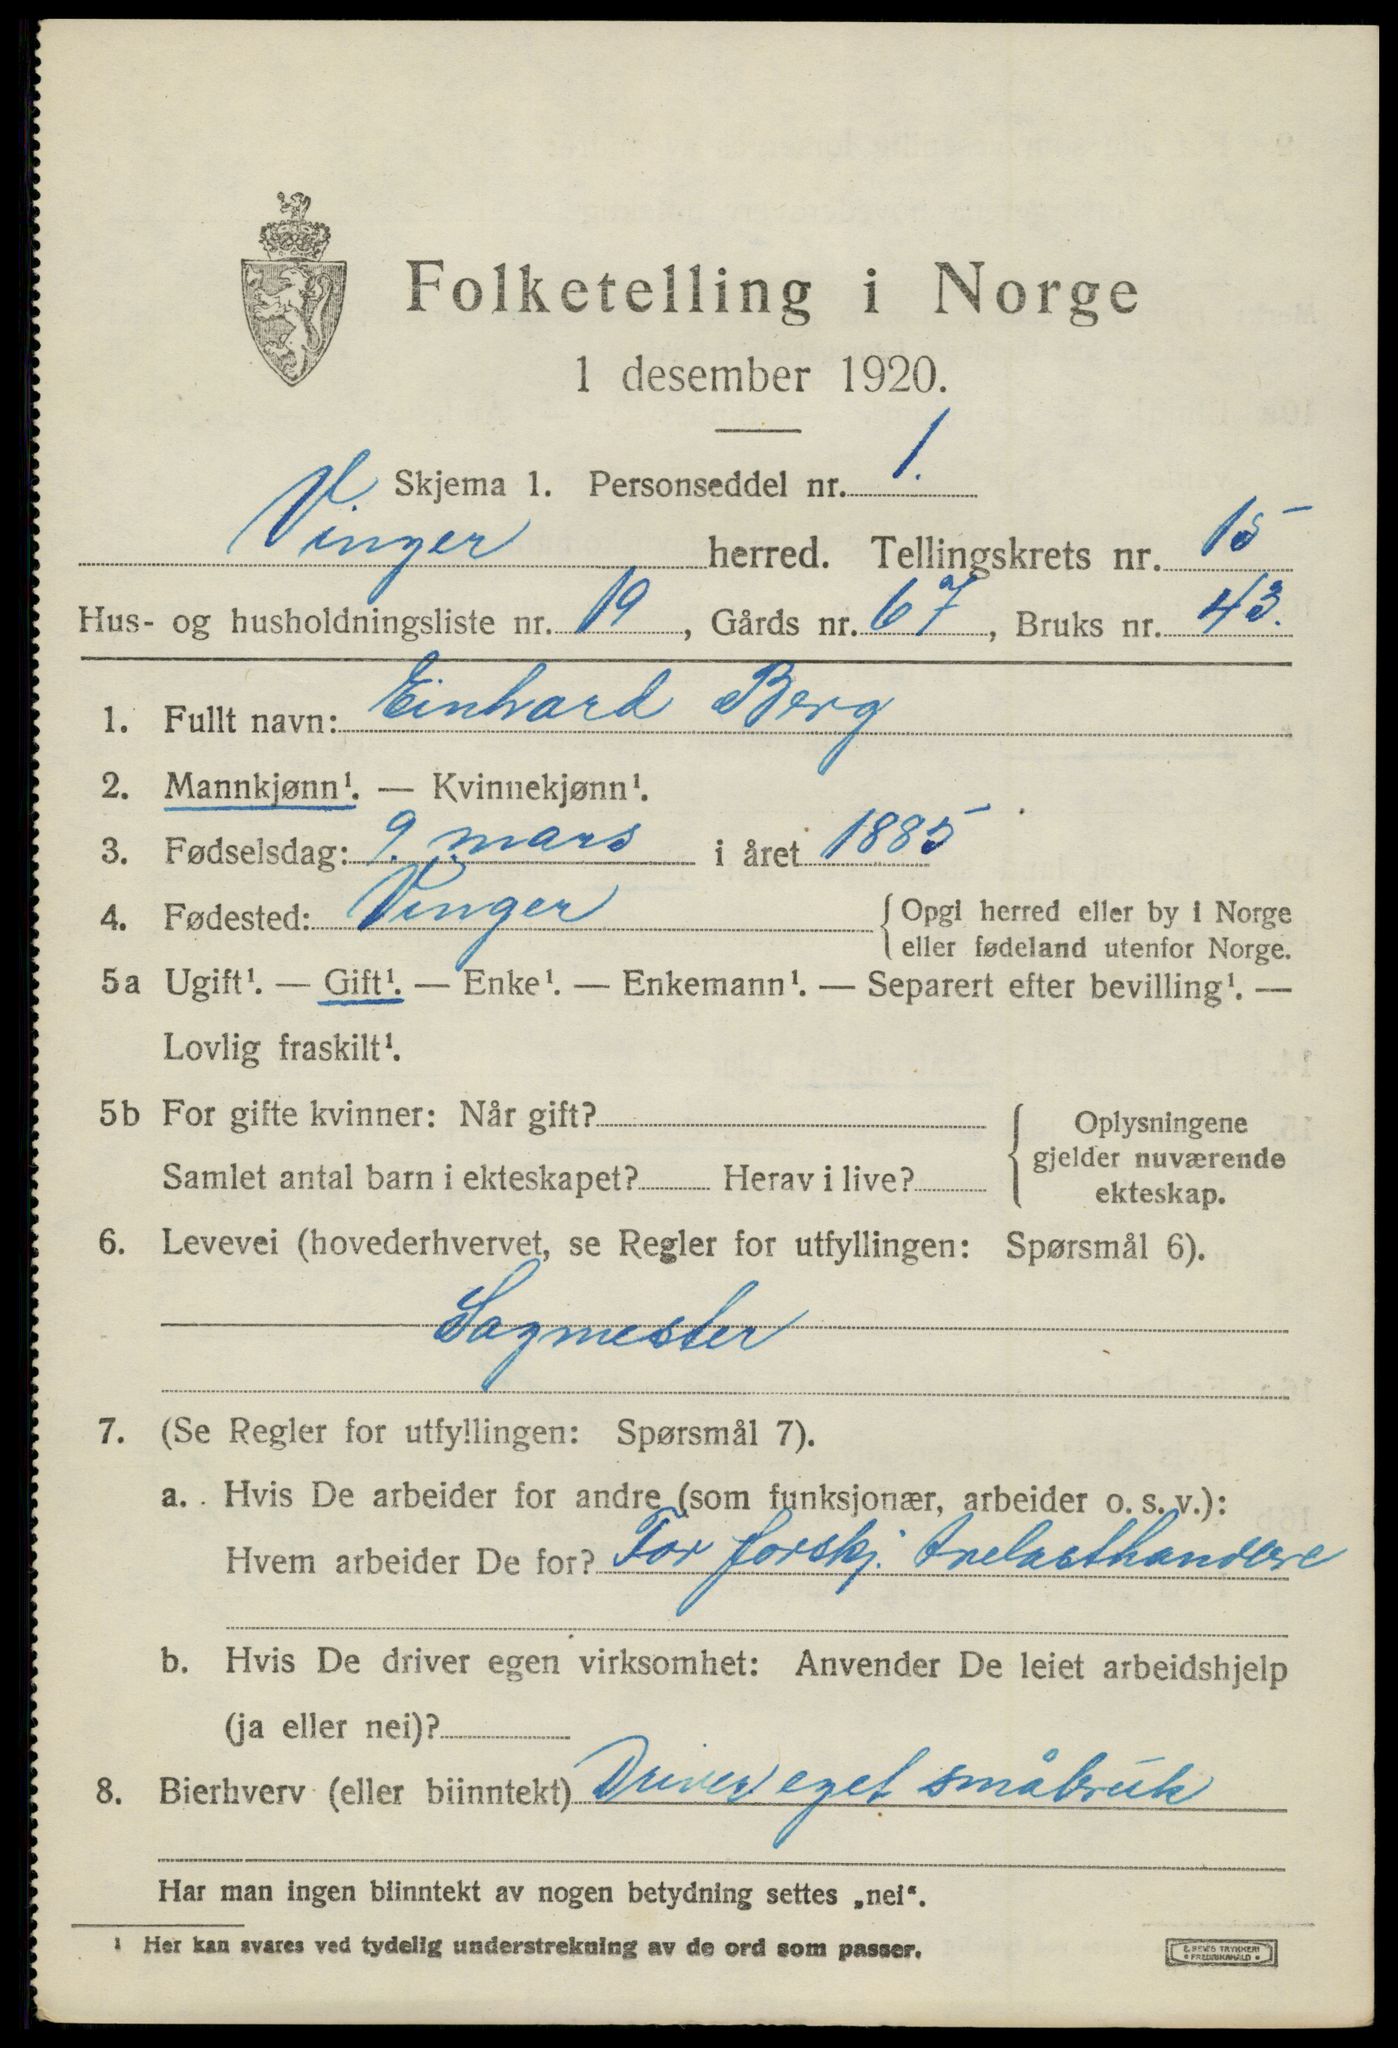 Folketelling i Norge
1 desember 1920.
Skjema 1. Personseddel nr. 1.
Vinger herred. Tellingskrets nr. 15
Hus- og husholdningsliste nr. 19, Gårds nr. 67, Bruks nr. 43.
1. Fullt navn: Einhard Berg
2. Mannkjønn¹. — Kvinnekjønn¹.
3. Fødselsdag: 9. mars i året 1885
4. Fødested: Vinger {Opgi herred eller by i Norge
eller fødeland utenfor Norge.
5a Ugift¹. — Gift¹. — Enke¹. — Enkemann¹. — Separert efter bevilling¹. —
Lovlig fraskilt¹.
5b For gifte kvinner: Når gift? { Oplysningene
gjelder nuværende
Samlet antal barn i ekteskapet? Herav i live?
ekteskap.
6. Levevei (hovederhvervet, se Regler for utfyllingen: Spørsmål 6).
Sagmester
7. (Se Regler for utfyllingen: Spørsmål 7).
a. Hvis De arbeider for andre (som funksjonær, arbeider o. s. v.):
Hvem arbeider De for? For forskj. trelasthandlere
b. Hvis De driver egen virksomhet: Anvender De leiet arbeidshjelp
(ja eller nei)?
8. Bierhverv (eller biinntekt) Driver eget småbruk
Har man ingen biinntekt av nogen betydning settes „nei“.
¹ Her kan svares ved tydelig understrekning av de ord som passer.
TRYKKERI
FREDRIKSHALD